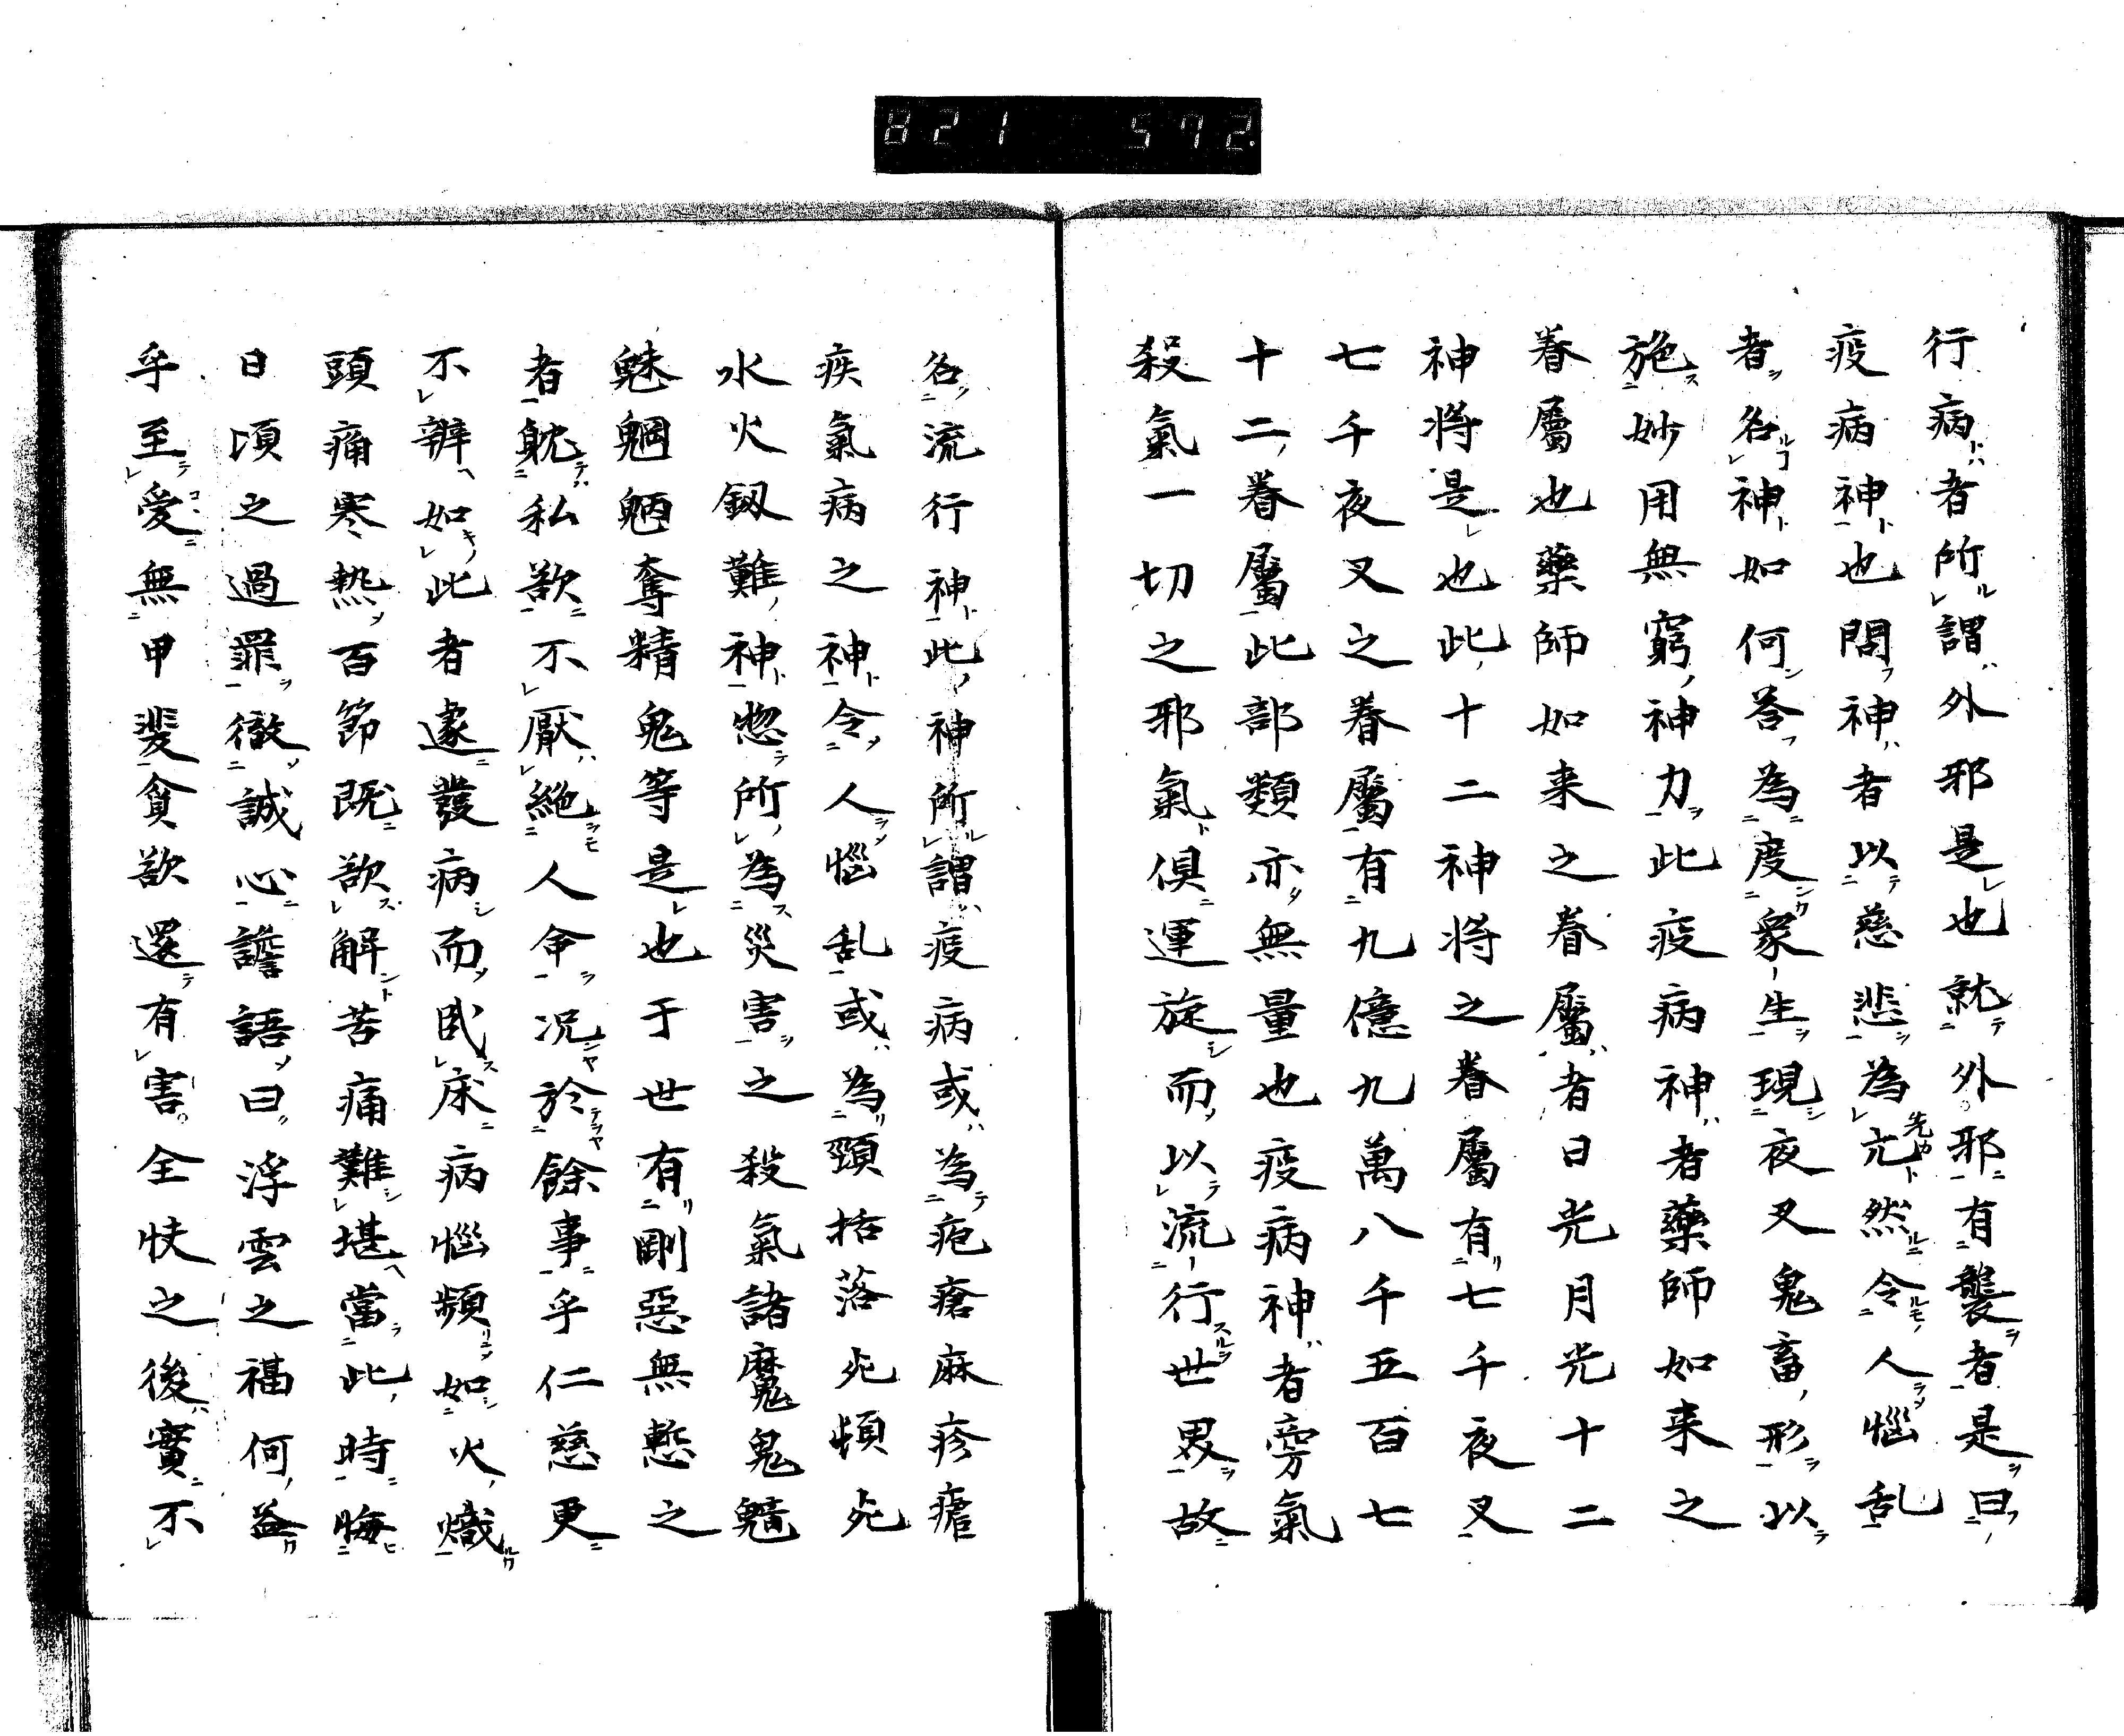 821 572.
行病者所謂外邪是也就外邪有襲者是曰
疫病神也問神者以慈悲為亢然令人惱乱
者名神如何答為度衆生現夜叉鬼畜形以
施妙用無窮神力此疫病神者藥師如来之
眷屬也藥師如来之眷屬者日光月光十二
神将是也此十二神将之眷屬有七千夜叉
七千夜叉之眷屬有九億九萬八千五百七
十二眷屬此部類亦無量也疫病神者旁氣
殺氣一切之邪氣俱運旋而以流行世界故
名流行神此神所謂疫病或為疱瘡麻疹瘧
疾氣病之神令人惱乱或為頸括落死頓死
水火釼難神惣所為災害之殺氣諸魔鬼魑
魅魍魎奪精鬼等是也于世有剛惡無慙之
者耽私欲不厭絶人命况於餘事乎仁慈更
不辨如此者遽發病而臥床病惱頻如火熾
頭痛寒熱百節既欲解苦痛難堪當此時悔
日頃之過罪徹誠心譫語曰浮雲之福何益
乎至愛無甲斐貪欲還有害全快之後實不